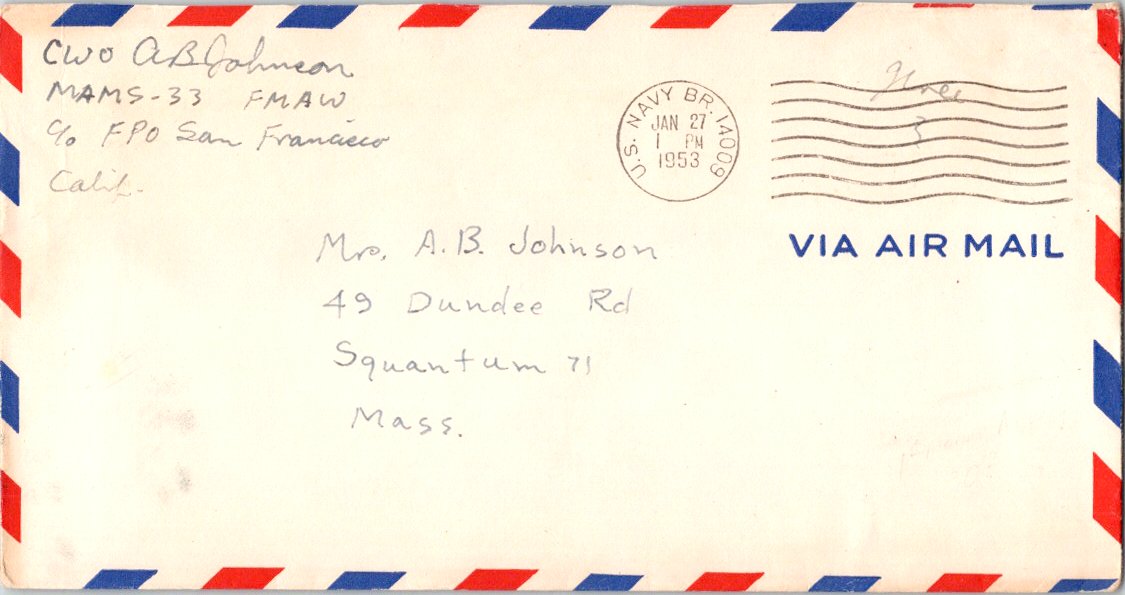 CWO A B Johnson
MAMS-33 FMAW
c/o FPO San Francisco
Calif.
U.S. NAVY BR. 14009
JAN 27
1 PM
1953
Free
VIA AIR MAIL
Mrs. A.B. Johnson
49 Dundee Rd
Squantum 71
Mass.